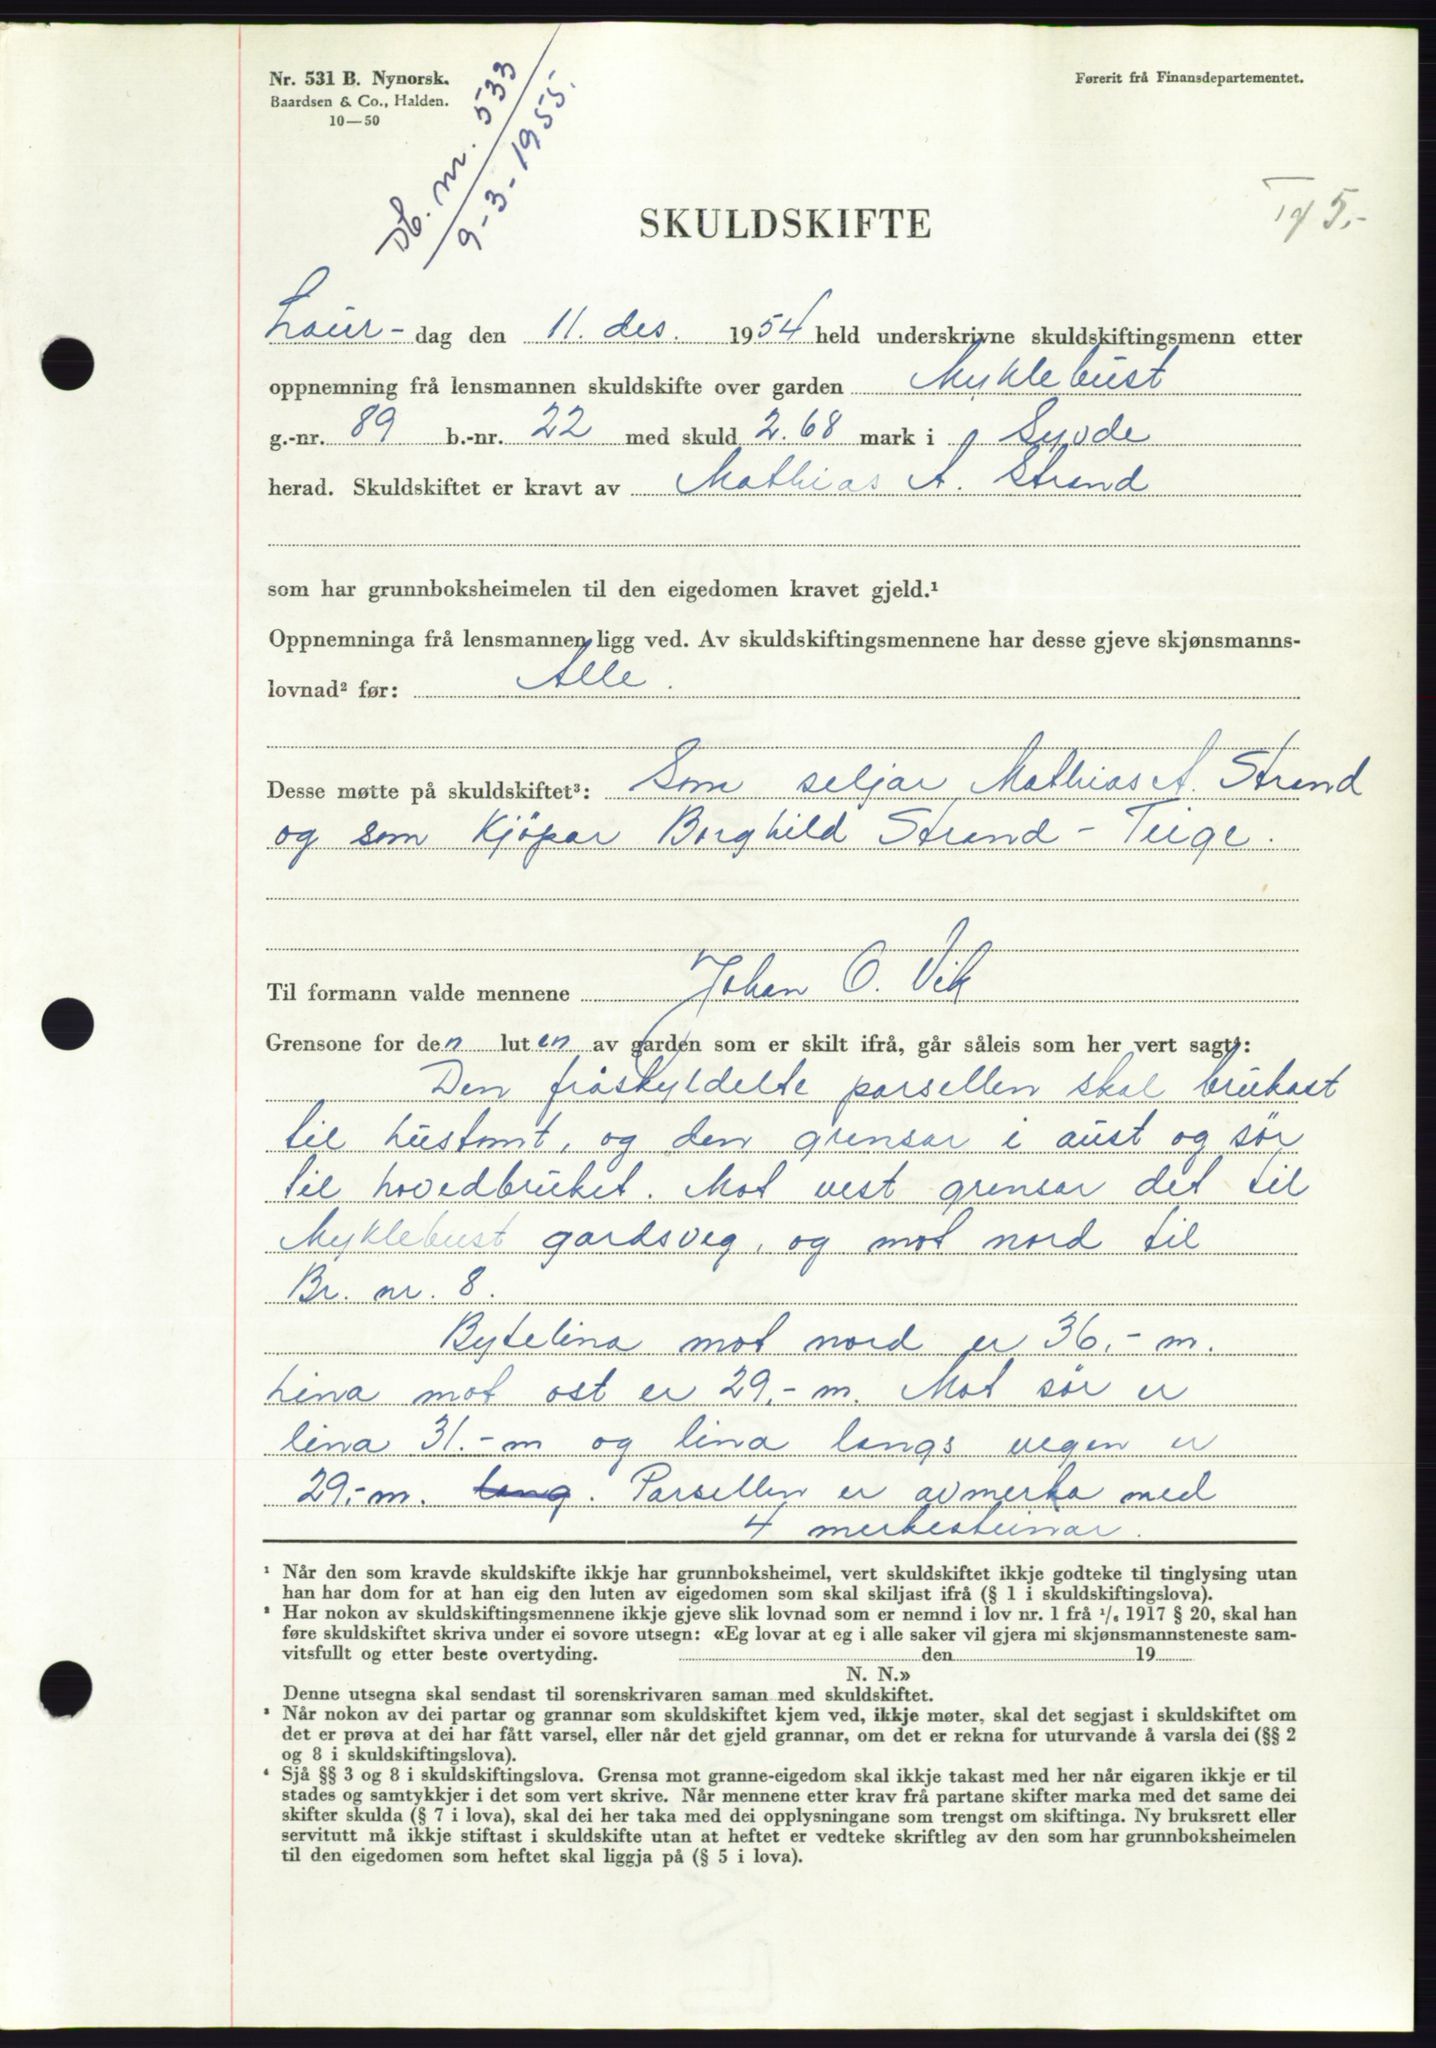 Nr. 531 B. Nynorsk.
Baardsen & Co., Halden.
10—50
Førerit frå Finansdepartementet.
Db. nr. 533
9-3-1955.
5.-
SKULDSKIFTE
Laur- dag den 11. des. 1954 held underskrivne skuldskiftingsmenn etter
oppnemning frå lensmannen skuldskifte over garden Myklebust
g.-nr. 89 b.-nr. 22 med skuld 2.68 mark i Syvde
herad. Skuldskiftet er kravt av Mathias A. Strand
som har grunnboksheimelen til den eigedomen kravet gjeld.¹
Oppnemninga frå lensmannen ligg ved. Av skuldskiftingsmennene har desse gjeve skjønsmanns-
lovnad² før: Alle.
Desse møtte på skuldskiftet³: Som seljar Mathias A. Strand
og som kjöpar Borghild Strand - Teige.
Til formann valde mennene Johan O. Vik
Grensone for den luten av garden som er skilt ifrå, går såleis som her vert sagt⁴:
Den fråskyldelte parsellen skal brukast
til hustomt, og den grensar i aust og sør
til hovedbruket. Mot vest grensar det til
Myklebust gardsveg, og mot nord til
Br. nr. 8.
Bytelina mot nord er 36.- m.
Lina mot ost er 29.- m. Mot sör er
lina 31.- m og lina langs vegen er
29.- m. lang. Parsellen er avmerka med
4 merkesteinar.
¹ Når den som kravde skuldskifte ikkje har grunnboksheimel, vert skuldskiftet ikkje godteke til tinglysing utan
han har dom for at han eig den luten av eigedomen som skal skiljast ifrå (§ 1 i skuldskiftingslova).
² Har nokon av skuldskiftingsmennene ikkje gjeve slik lovnad som er nemnd i lov nr. 1 frå ¹/₆ 1917 § 20, skal han
føre skuldskiftet skriva under ei sovore utsegn: «Eg lovar at eg i alle saker vil gjera mi skjønsmannsteneste sam-
vitsfullt og etter beste overtyding. den 19
N. N.»
Denne utsegna skal sendast til sorenskrivaren saman med skuldskiftet.
³ Når nokon av dei partar og grannar som skuldskiftet kjem ved, ikkje møter, skal det segjast i skuldskiftet om
det er prøva at dei har fått varsel, eller når det gjeld grannar, om det er rekna for uturvande å varsla dei (§§ 2
og 8 i skuldskiftingslova).
⁴ Sjå §§ 3 og 8 i skuldskiftingslova. Grensa mot granne-eigedom skal ikkje takast med her når eigaren ikkje er til
stades og samtykkjer i det som vert skrive. Når mennene etter krav frå partane skifter marka med det same dei
skifter skulda (§ 7 i lova), skal dei her taka med dei opplysningane som trengst om skiftinga. Ny bruksrett eller
servitutt må ikkje stiftast i skuldskifte utan at heftet er vedteke skriftleg av den som har grunnboksheimelen
til den eigedomen som heftet skal liggja på (§ 5 i lova).